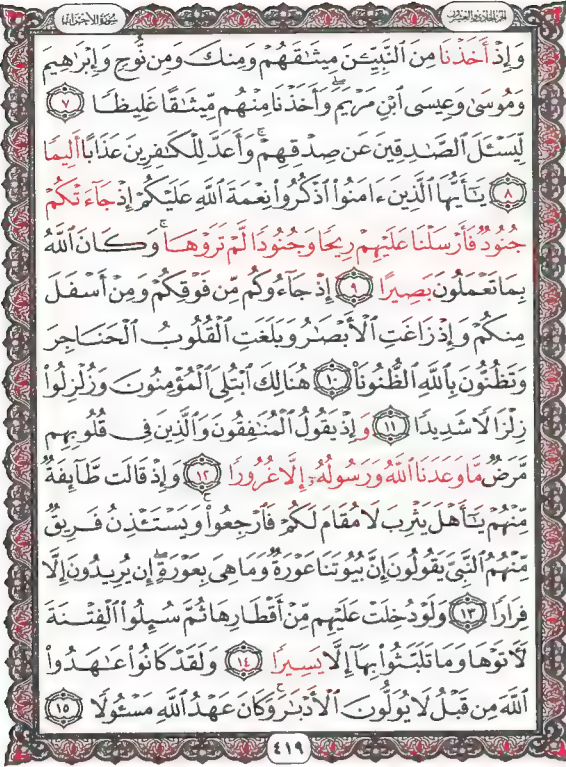 سُورَةُ الأَحْزَابِ
الجزء الحادي والعشرون
وَإِذْ أَخَذْنَا مِنَ ٱلنَّبِيِّـۧنَ مِيثَٰقَهُمْ وَمِنكَ وَمِن نُّوحٍ وَإِبْرَٰهِيمَ
وَمُوسَىٰ وَعِيسَى ٱبْنِ مَرْيَمَۖ وَأَخَذْنَا مِنْهُم مِّيثَٰقًا غَلِيظًا ٧
لِّيَسْـَٔلَ ٱلصَّٰدِقِينَ عَن صِدْقِهِمْۚ وَأَعَدَّ لِلْكَٰفِرِينَ عَذَابًا أَلِيمًا
٨ يَٰٓأَيُّهَا ٱلَّذِينَ ءَامَنُوا۟ ٱذْكُرُوا۟ نِعْمَةَ ٱللَّهِ عَلَيْكُمْ إِذْ جَآءَتْكُمْ
جُنُودٌ فَأَرْسَلْنَا عَلَيْهِمْ رِيحًا وَجُنُودًا لَّمْ تَرَوْهَاۚ وَكَانَ ٱللَّهُ
بِمَا تَعْمَلُونَ بَصِيرًا ٩ إِذْ جَآءُوكُم مِّن فَوْقِكُمْ وَمِنْ أَسْفَلَ
مِنكُمْ وَإِذْ زَاغَتِ ٱلْأَبْصَٰرُ وَبَلَغَتِ ٱلْقُلُوبُ ٱلْحَنَاجِرَ
وَتَظُنُّونَ بِٱللَّهِ ٱلظُّنُونَا۠ ١٠ هُنَالِكَ ٱبْتُلِىَ ٱلْمُؤْمِنُونَ وَزُلْزِلُوا۟
زِلْزَالًا شَدِيدًا ١١ وَإِذْ يَقُولُ ٱلْمُنَٰفِقُونَ وَٱلَّذِينَ فِى قُلُوبِهِم
مَّرَضٌ مَّا وَعَدَنَا ٱللَّهُ وَرَسُولُهُۥٓ إِلَّا غُرُورًا ١٢ وَإِذْ قَالَت طَّآئِفَةٌ
مِّنْهُمْ يَٰٓأَهْلَ يَثْرِبَ لَا مُقَامَ لَكُمْ فَٱرْجِعُوا۟ۚ وَيَسْتَـْٔذِنُ فَرِيقٌ
مِّنْهُمُ ٱلنَّبِىَّ يَقُولُونَ إِنَّ بُيُوتَنَا عَوْرَةٌ وَمَا هِىَ بِعَوْرَةٍۖ إِن يُرِيدُونَ إِلَّا
فِرَارًا ١٣ وَلَوْ دُخِلَتْ عَلَيْهِم مِّنْ أَقْطَارِهَا ثُمَّ سُئِلُوا۟ ٱلْفِتْنَةَ
لَـَٔاتَوْهَا وَمَا تَلَبَّثُوا۟ بِهَآ إِلَّا يَسِيرًا ١٤ وَلَقَدْ كَانُوا۟ عَٰهَدُوا۟
ٱللَّهَ مِن قَبْلُ لَا يُوَلُّونَ ٱلْأَدْبَٰرَۚ وَكَانَ عَهْدُ ٱللَّهِ مَسْـُٔولًا ١٥
٤١٩